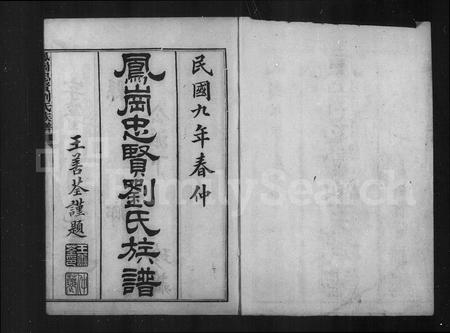 民國九年春仲
鳳崗忠賢劉氏族譜
王善荃謹題
FamilySearch